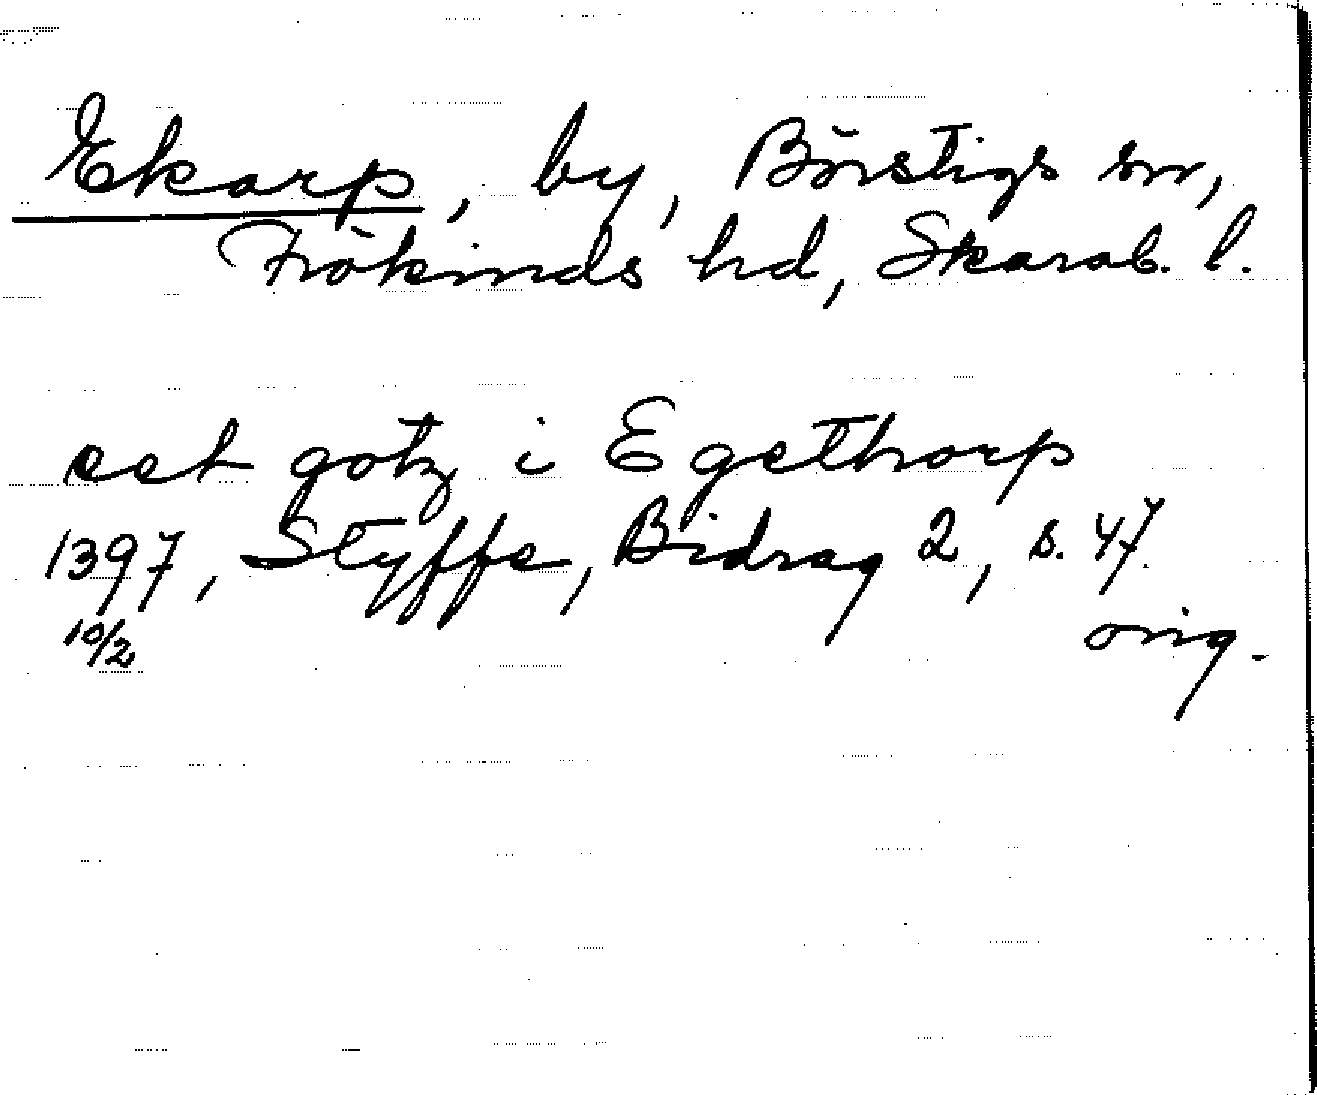 Ekarp, by, Börstigs sn,
Frökinds hd, Skarab. l.
eet gotz i Egethorp
1397, Styffe, Bidrag 2, s. 47.
10/2 orig.